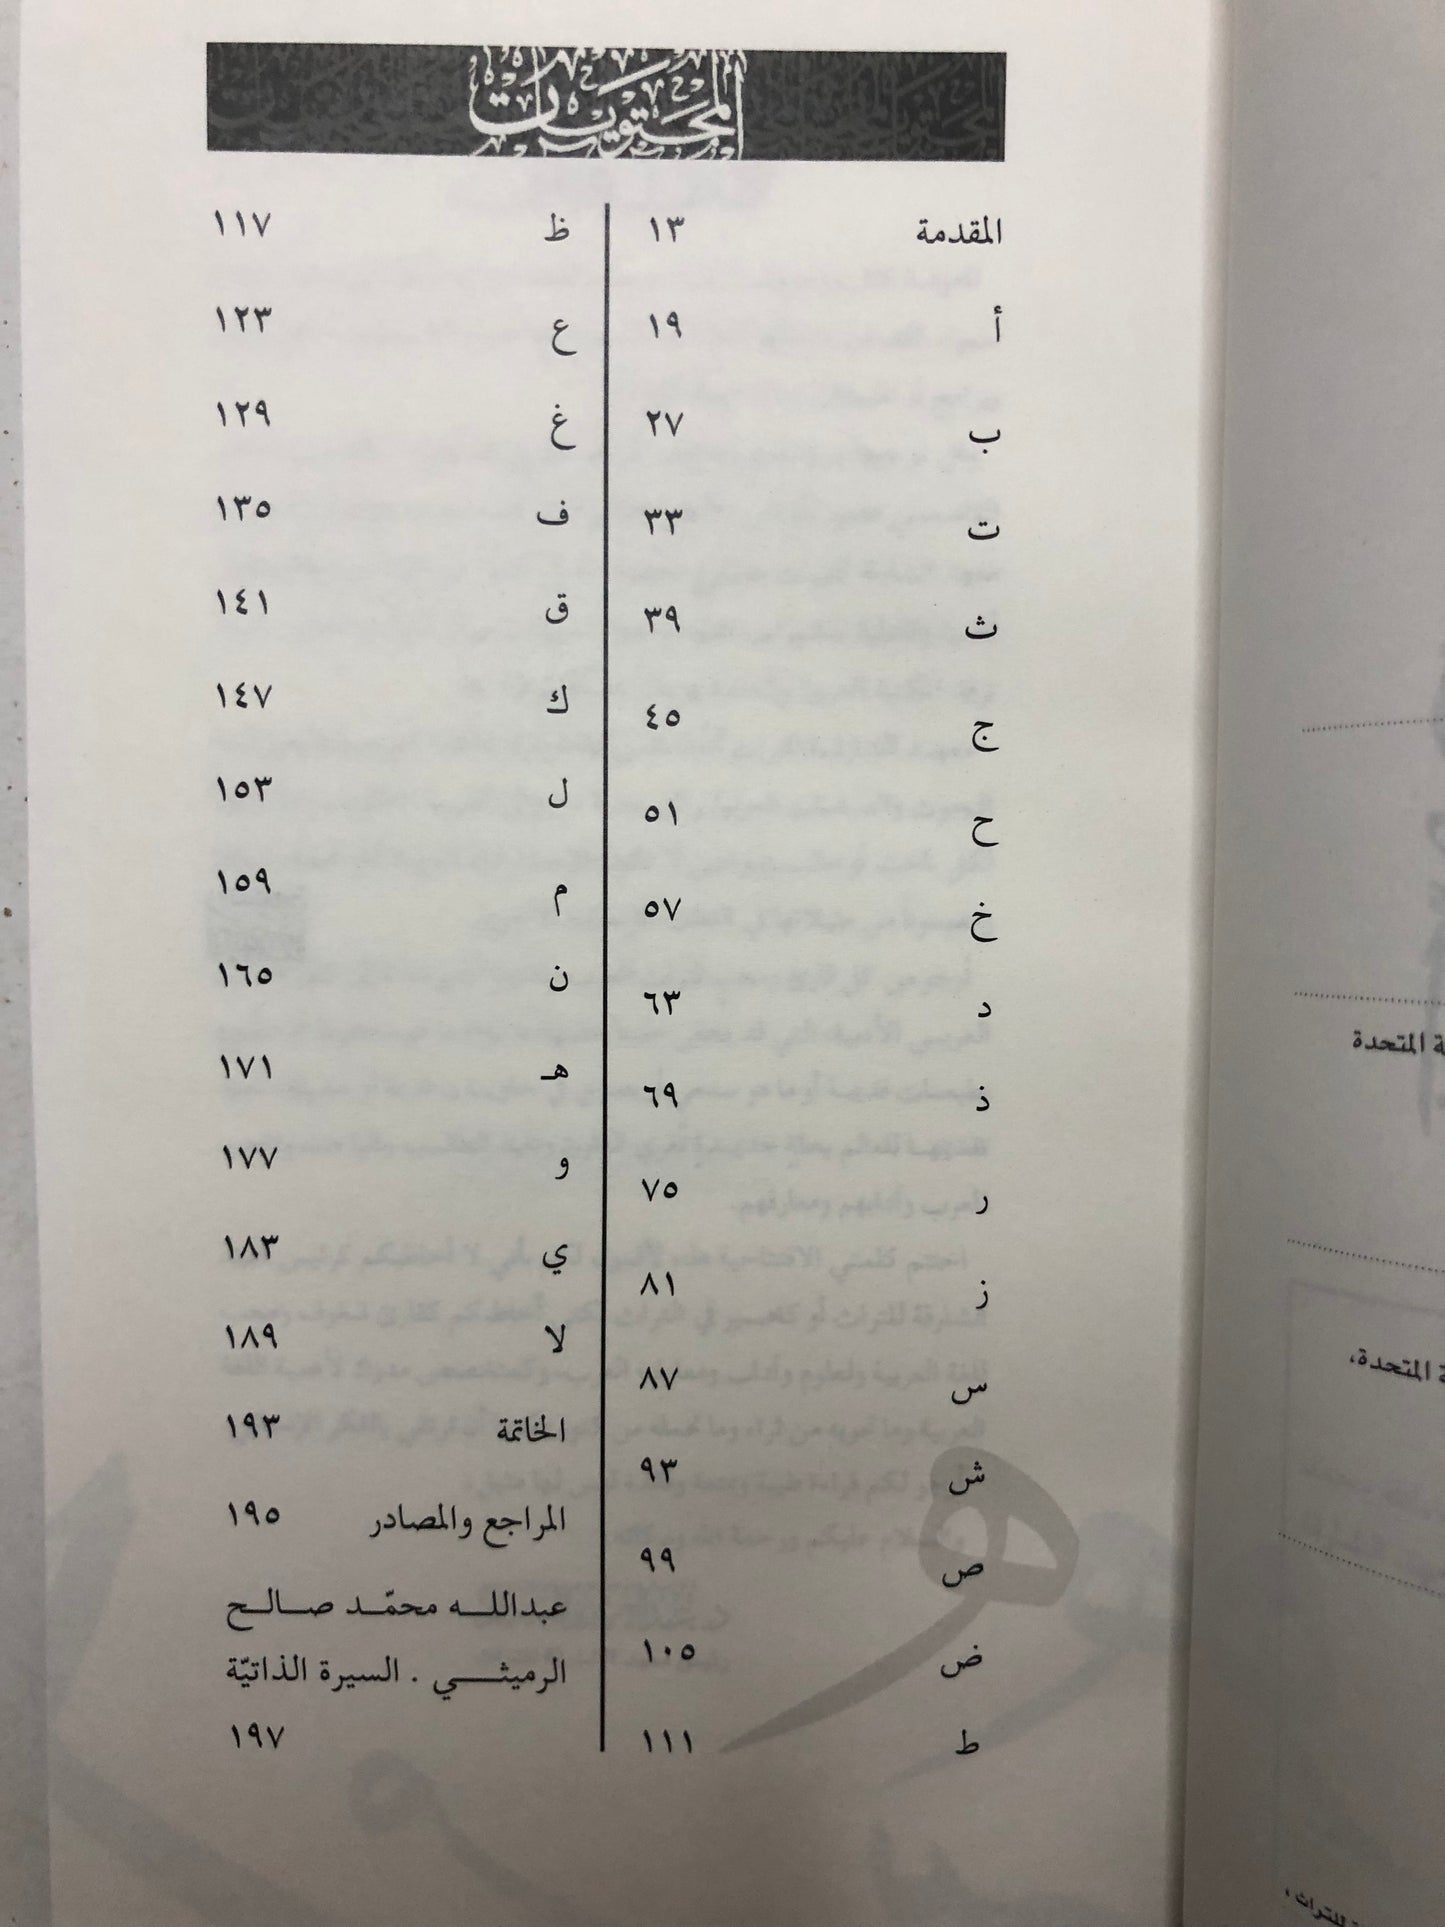 المحتويات
المقدمة ١٣
أ ١٩
ب ٢٧
ت ٣٣
ث ٣٩
ج ٤٥
ح ٥١
خ ٥٧
د ٦٣
ذ ٦٩
ر ٧٥
ز ٨١
س ٨٧
ش ٩٣
ص ٩٩
ض ١٠٥
ط ١١١
ظ ١١٧
ع ١٢٣
غ ١٢٩
ف ١٣٥
ق ١٤١
ك ١٤٧
ل ١٥٣
م ١٥٩
ن ١٦٥
هـ ١٧١
و ١٧٧
ي ١٨٣
لا ١٨٩
الخاتمة ١٩٣
المراجع والمصادر ١٩٥
عبدالله محمّد صالح
الرميثي . السيرة الذاتيّة
١٩٧
المتحدة
المتحدة،
للتراث ،